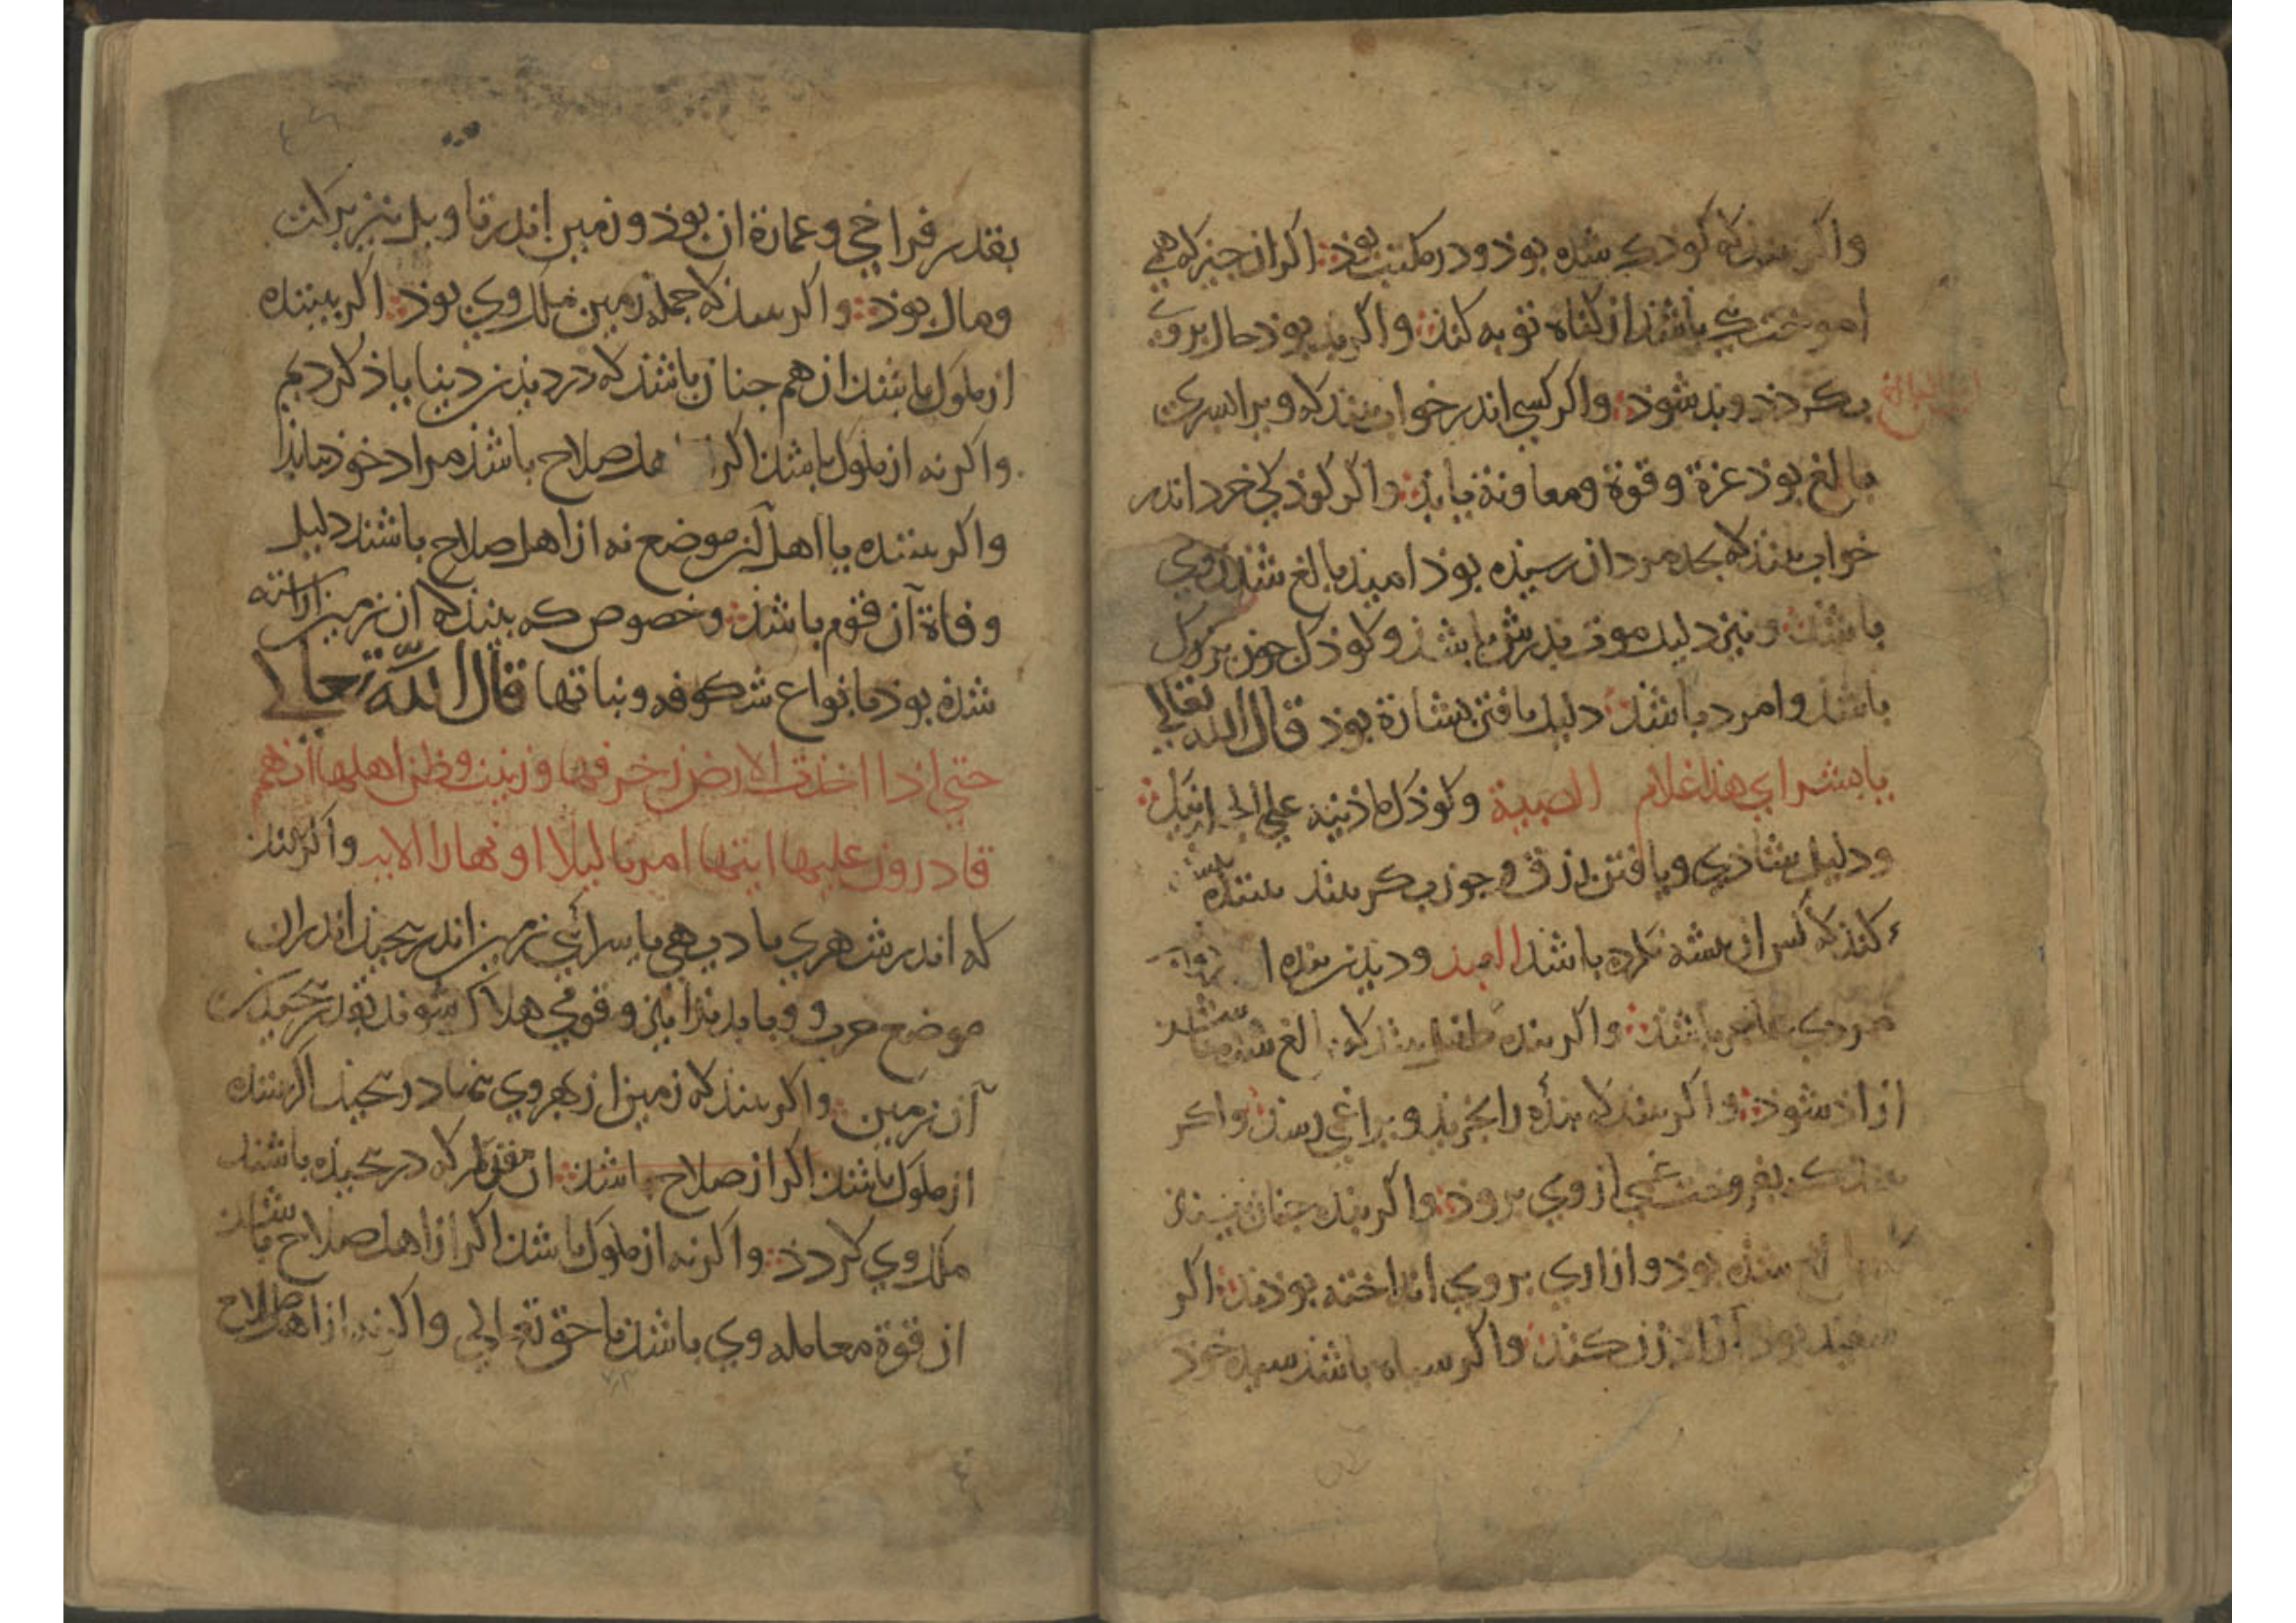 واکر بیند که کودکی شده بوذ و در مکتب بوذ اکر ازان جیز که همی
اموختست باشذ از کناه توبه کند واکر بذ بوذ حال بروی
بکردذ و بذ شوذ واکر کسی اندر خواب بیند که ویرا بسری
بالغ بوذ عزة وقوة ومعاونة یابذ واکر کوذکی خرد اندر
خواب بیند که بحد مردان رسیذه بوذ امیذ بالغ شدن وی
باشذ ونیز دلیل موت بدرش باشذ وکوذک جون بزرک
باشذ وامرد باشذ دلیل یافتن بشارة بوذ قال الله تعالی
یا بشرای هذا غلام الصبیة وکوذک ماذنیه علی الجا
ودلیل شاذی ویافتن رزق وجون بکر بیند بیننده
کند که کس ازان بیشه نکرده باشذ العبد ودیذن بنده
مردی باشذ واکر بنده طفل بیند که بالغ شده
ازاذ شوذ واکر بیند که بنده را بخرید ویرا غمی رسد واکر
بفروخت غمی از وی برود واکر بنده جنان بیند
شده بوذ وازاری بر وی انداخته بوذند اکر
سفید بوذ آزاد زن کند واکر سیاه باشذ سید خود
بقدر فراخی وعمارة ان بوذ وزمین اندر تاویل نیز برکت
ومال بوذ واکر بیند که جمله زمین ملک وی بوذ اکر بیننده
از ملوک باشد ازهم جنان باشذ که در دیذن دینا یاذ کردیم
واکر نه از ملوک باشد اکر اهل صلاح باشذ مراد خوذ بیابذ
واکر بیننده یا اهل آن موضع نه از اهل صلاح باشند دلیل
وفاة آن قوم باشذ وخصوص که بیند که ان زمین اراسته
شذه بوذ بانواع شکوفه ونباتها قال الله تعالی
حتی اذا اخذت الارض زخرفها وزینت وظن اهلها انهم
قادرون علیها اتیها امرنا لیلا او نهارا الایه واکر بیند
که اندر شهری یا دیهی یا سرائی زمین اندر بیجید اندران
موضع حرب ووبا بدیذ آیذ وقومی هلاک شوند بقدر بیجیدن
آن زمین واکر بیند که زمین از بهر وی بهم در بیجید اکر بیننده
از ملوک باشد اکر از صلاح باشد ان مقدار که در بیجیده باشند
ملک وی کردذ واکر نه از ملوک باشد اکر از اهل صلاح باشذ
از قوة معامله وی باشد با حق تعالی واکر نه از اهل صلاح